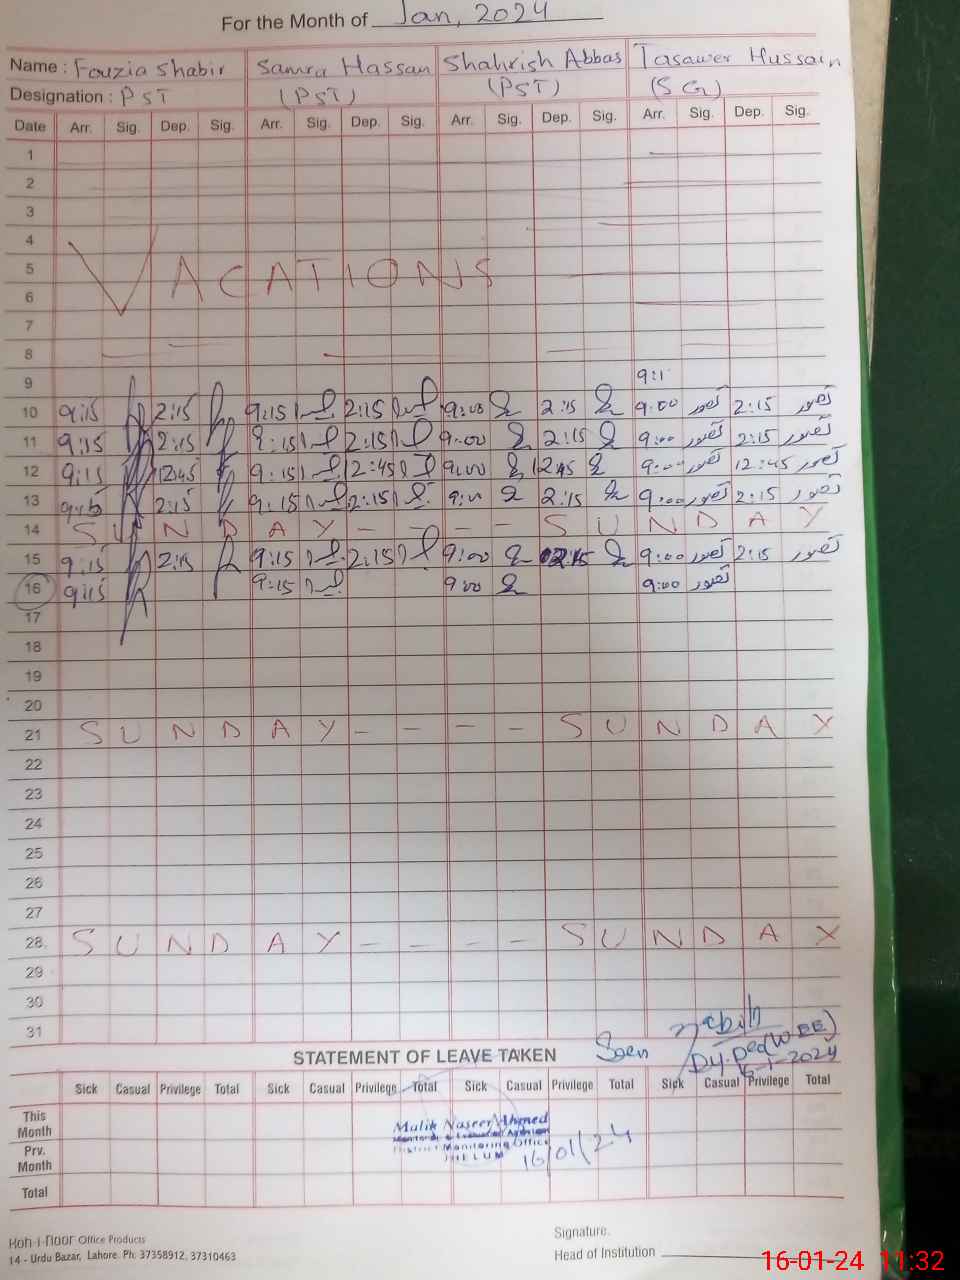 For the Month of Jan, 2024
Name : Fouzia Shabir Samra Hassan Shahrish Abbas Tasawer Hussain
Designation : PST (PST) (PST) (SG)
Date Arr. Sig. Dep. Sig. Arr. Sig. Dep. Sig. Arr. Sig. Dep. Sig. Arr. Sig. Dep. Sig.
1
2
3
4
5 VACATIONS
6
7
8
9 9:1
10 9:15 2:15 9:15 2:15 9:00 2:15 9:00 تصور 2:15 تصور
11 9:15 2:15 9:15 2:15 9:00 2:15 9:00 تصور 2:15 تصور
12 9:15 12:45 9:15 12:45 9:00 12:45 9:00 تصور 12:45 تصور
13 9:15 2:15 9:15 2:15 9:00 2:15 9:00 تصور 2:15 تصور
14 SUNDAY - - - - SUNDAY
15 9:15 2:15 9:15 2:15 9:00 02:15 9:00 تصور 2:15 تصور
16 9:15 9:15 9:00 9:00 تصور
17
18
19
20
21 SUNDAY - - - - SUNDAY
22
23
24
25
26
27
28 SUNDAY - - - - SUNDAY
29
30
31
STATEMENT OF LEAVE TAKEN Seen
Dy. Deo (W.EE)
-1-2024
Sick Casual Privilege Total Sick Casual Privilege Total Sick Casual Privilege Total Sick Casual Privilege Total
This Month
Prv. Month
Total
Malik Naseer Ahmed
District Monitoring Office
JHELUM
16/01/24
Koh-i-noor Office Products
14 - Urdu Bazar, Lahore. Ph: 37358912, 37310463
Signature.
Head of Institution
16-01-24 11:32